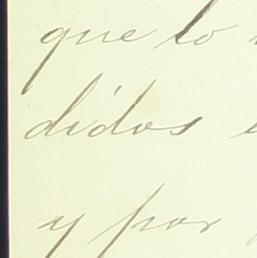 que lo
didos
y por